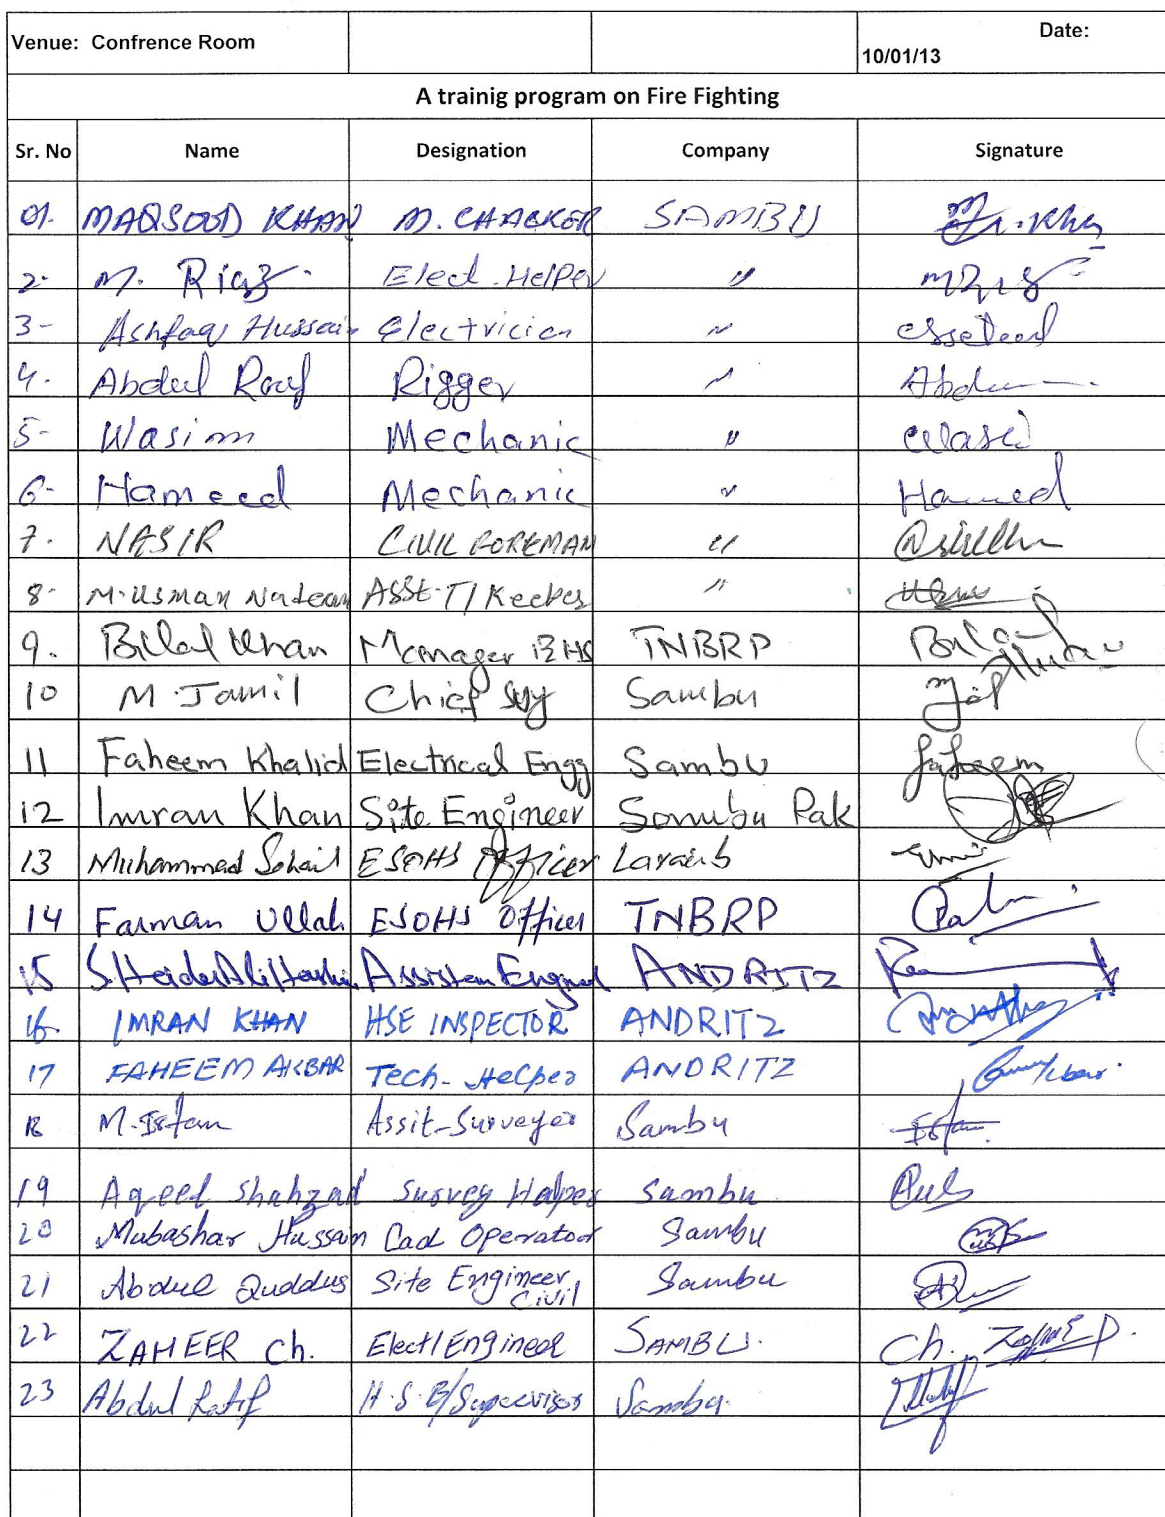 Venue: Confrence Room Date:
10/01/13
A trainig program on Fire Fighting
Sr. No Name Designation Company Signature
01. MAQSOOD KHAN M. CHACKER SAMBU
2- M. Riaz. Elect. Helper "
3- Ashfaq Hussain Electrician "
4. Abdul Rauf Rigger " Abdu
5- Wasim Mechanic "
6- Hameed Mechanic " Hameed
7. NASIR CIVIL FOREMAN "
8- M. Usman Nadeem Asst. T/Keeper "
9. Bilal Khan Manager EHS TNBRP
10 M. Jamil Chief Sambu
11 Faheem Khalid Electrical Engg Sambu faheem
12 Imran Khan Site Engineer Sambu Pak
13 Muhammad Sohail ESOHS Officer Laraib
14 Farman Ullah ESOHS Officer TNBRP
15 ANDRITZ
16- IMRAN KHAN HSE INSPECTOR ANDRITZ
17 FAHEEM AKBAR Tech- Helper ANDRITZ
18 Assit-Surveyer Sambu
19 Aqeel Shahzad Survey Helper Sambu
20 Mubashar Hussain Cad Operator Sambu
21 Abdul Quddus Site Engineer Sambu
Civil
22 ZAHEER Ch. Elect/Engineer SAMBU.
23 Abdul Latif H.S.E/Supervisor Sambu